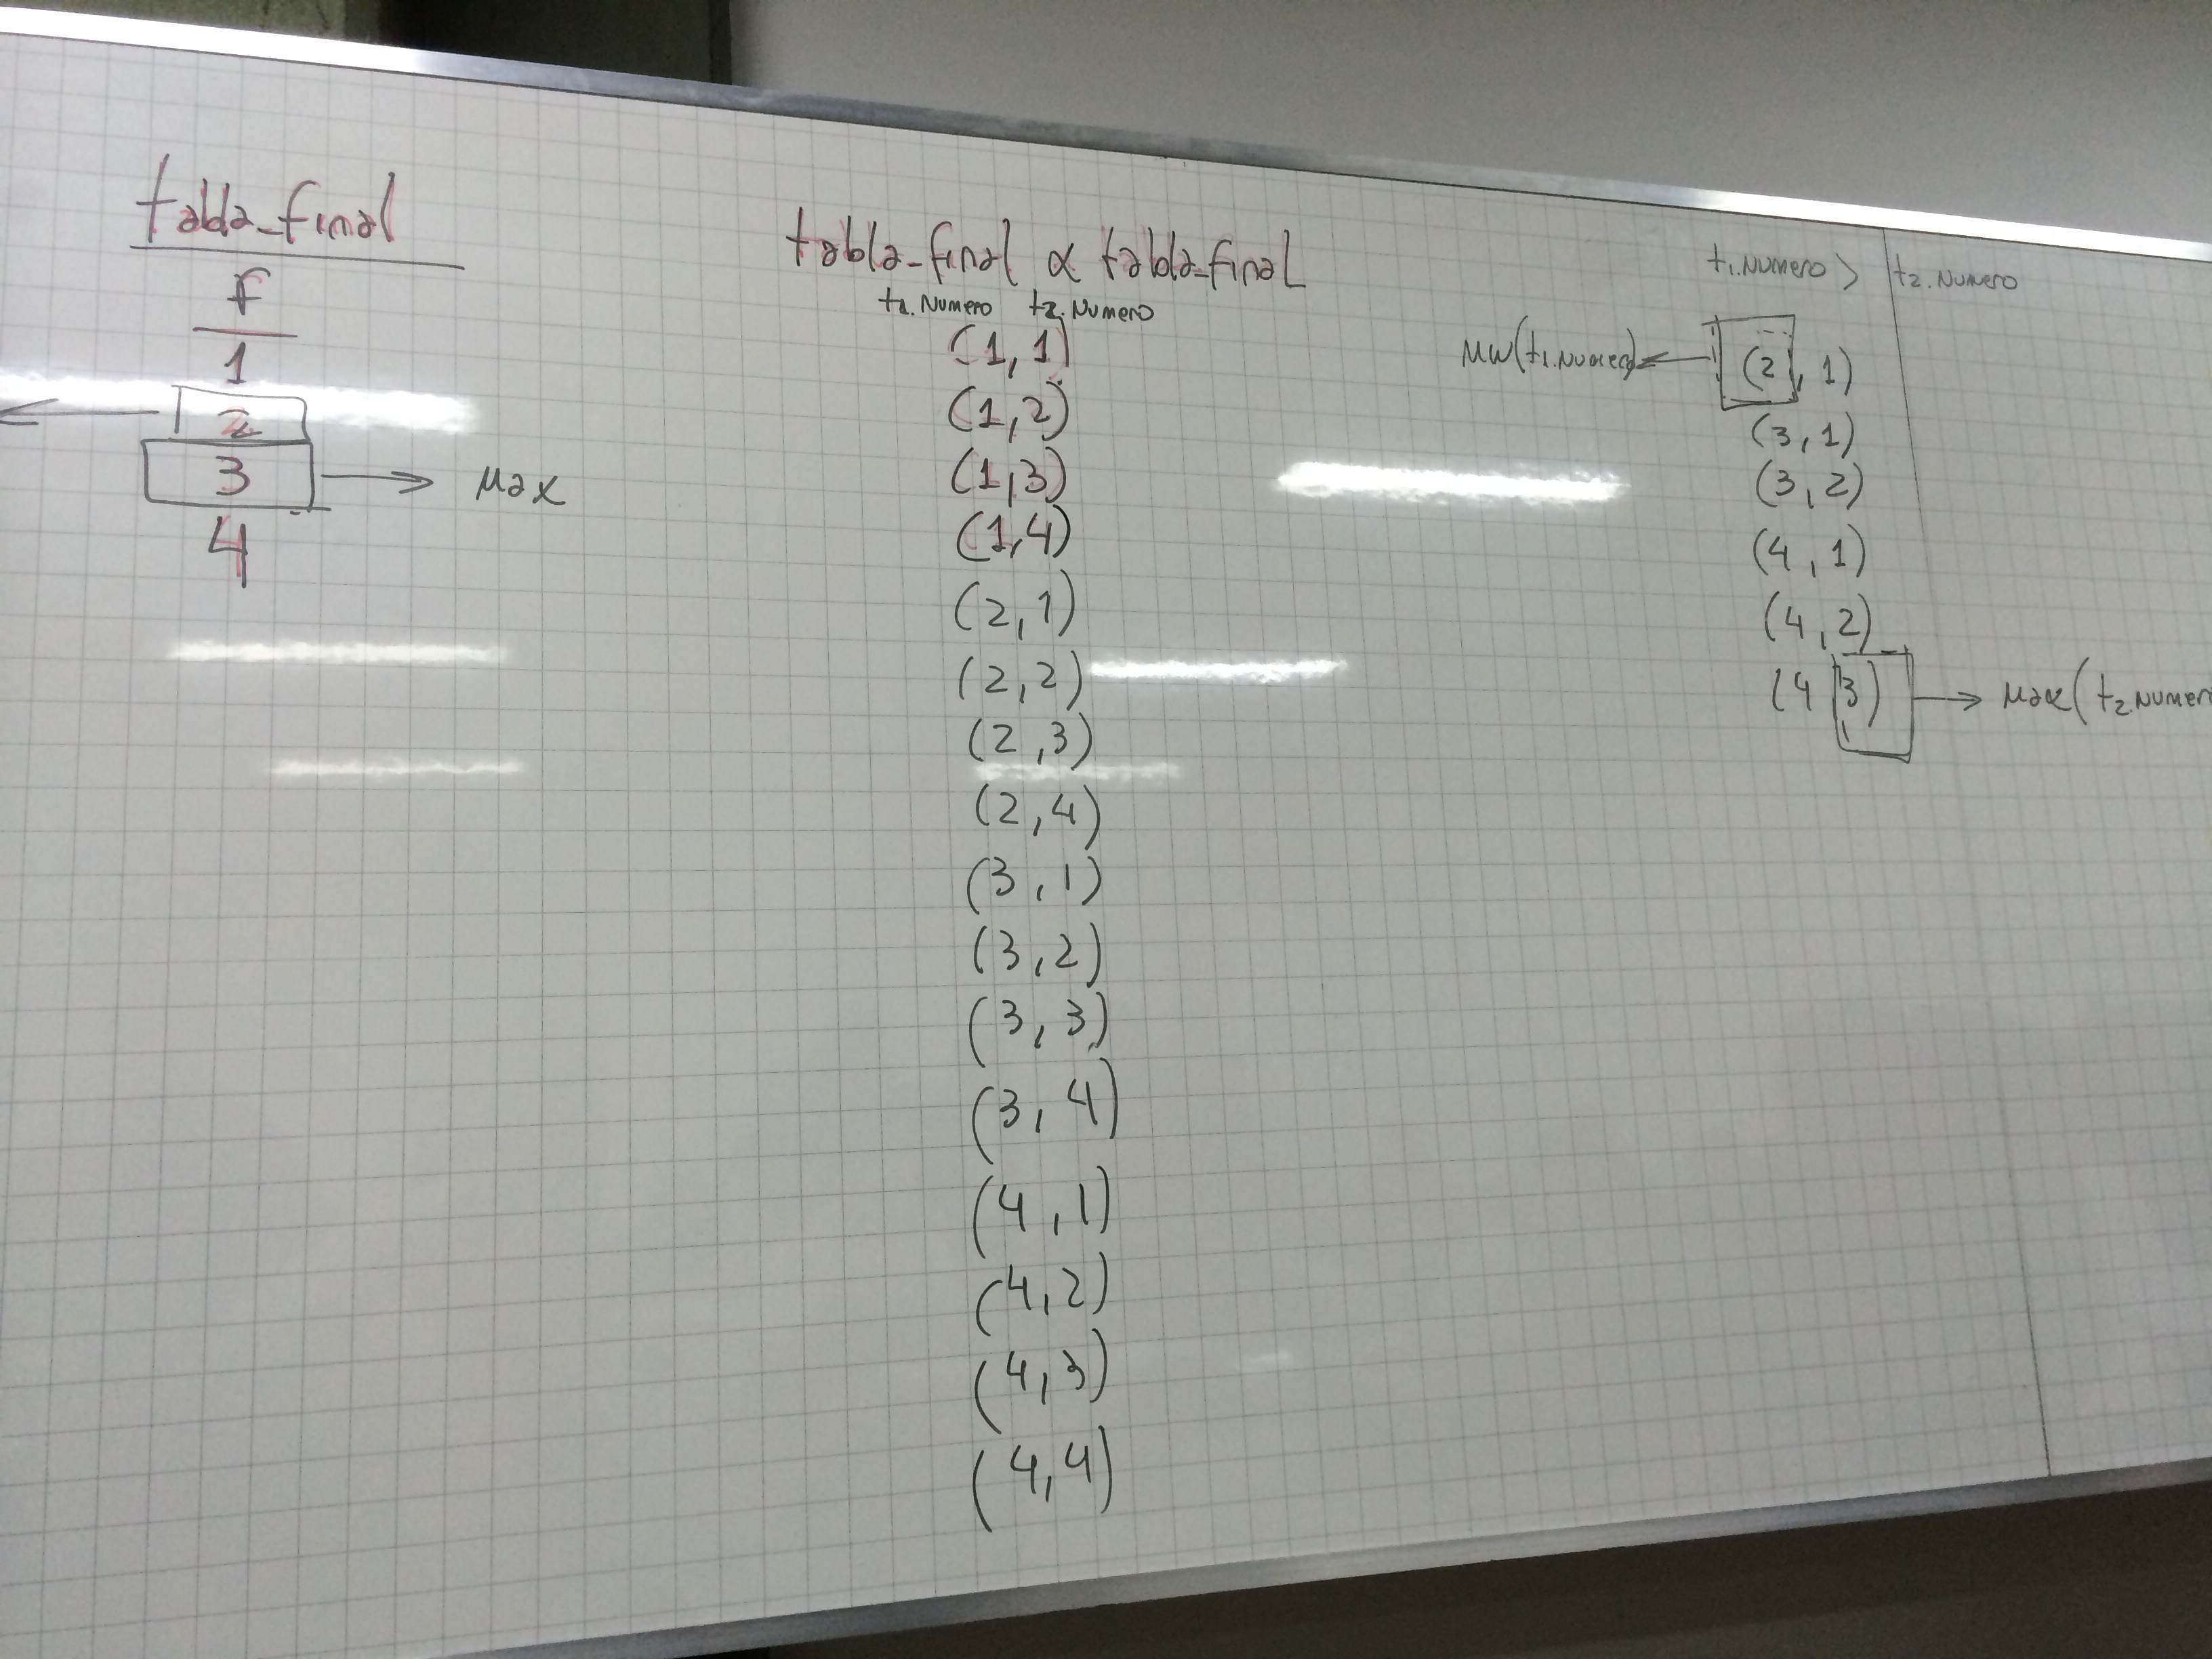 tabla_final
F
1
2
3 → Max
4
tabla_final ∝ tabla_final
t1.Numero t2.Numero
(1,1)
(1,2)
(1,3)
(1,4)
(2,1)
(2,2)
(2,3)
(2,4)
(3,1)
(3,2)
(3,3)
(3,4)
(4,1)
(4,2)
(4,3)
(4,4)
t1.Numero > t2.Numero
Min(t1.Numero) ← (2,1)
(3,1)
(3,2)
(4,1)
(4,2)
(4 3) → Max(t2.Numer